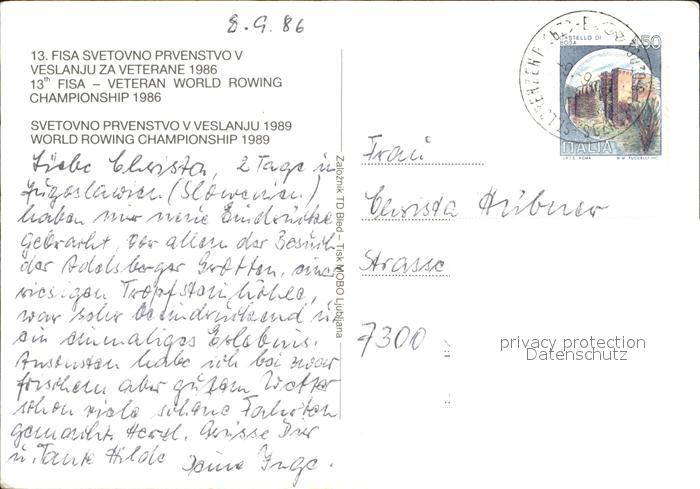 8.9.86
13. FISA SVETOVNO PRVENSTVO V
VESLANJU ZA VETERANE 1986
13th FISA – VETERAN WORLD ROWING
CHAMPIONSHIP 1986
SVETOVNO PRVENSTVO V VESLANJU 1989
WORLD ROWING CHAMPIONSHIP 1989
Liebe Christa, 2 Tage in
Jugoslawien (Slowenien)
haben mir neue Eindrücke
gebracht, vor allem der Besuch
der Adelsberger Grotten, einer
riesigen Tropfsteinhöhle,
war sehr beeindruckend u.
ein einmaliges Erlebnis.
Ansonsten habe ich bei zwar
frischem aber gutem Wetter
schon viele schöne Fahrten
gemacht. Herzl. Grüsse Dir
u. Tante Hilde Deine Inge.
Založnik TD Bled – Tisk MOBO Ljubljana
CASTELLO DI
BOSA
450
ITALIA
I.P.Z.S. ROMA
Frau
Christa Hübner
Strasse
7300
privacy protection
Datenschutz